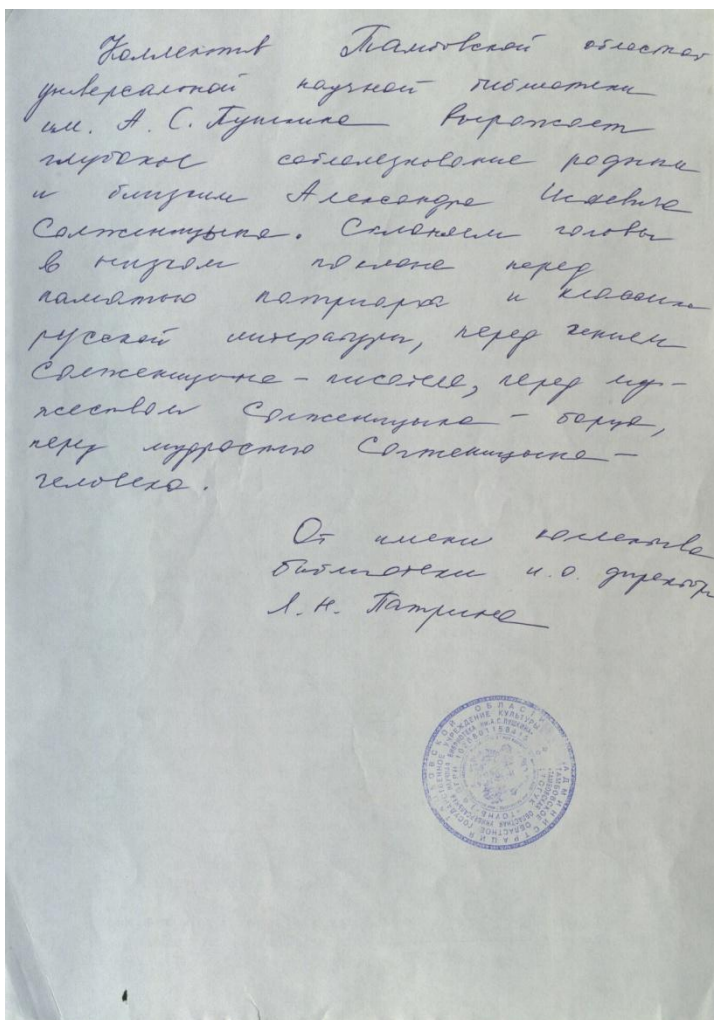 Коллектив Тамбовской областной
универсальной научной библиотеки
им. А. С. Пушкина выражает
глубокое соболезнование родным
и близким Александра Исаевича
Солженицына. Склоняем головы
в низком поклоне перед
памятью патриарха и классика
русской литературы, перед гением
Солженицына – писателя, перед му-
жеством Солженицына – борца,
перед мудростью Солженицына –
человека.
От имени коллектива
библиотеки и.о. директора
Л. Н. Патрина
АДМИНИСТРАЦИЯ ТАМБОВСКОЙ ОБЛАСТИ
ОБЛАСТНОЕ ГОСУДАРСТВЕННОЕ УЧРЕЖДЕНИЕ КУЛЬТУРЫ